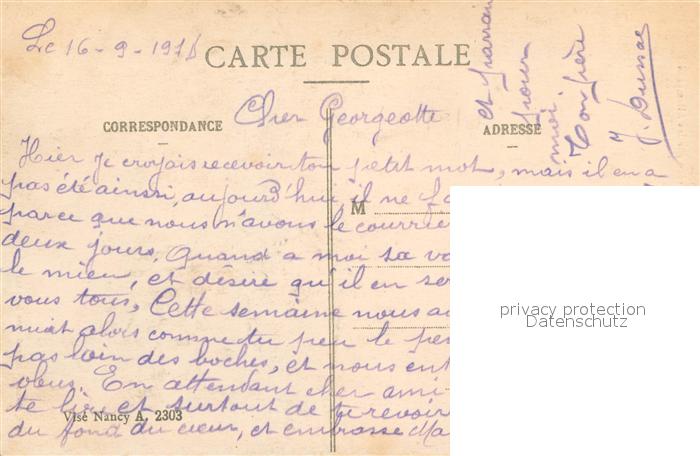 Le 16-9-1916
CARTE POSTALE
Cher Georgette
CORRESPONDANCE
ADRESSE
Hier je croyais recevoir ton petit mot, mais il en a
pas été ainsi, aujourd'hui il ne
M
parce que nous n'avons le courrier
deux jours. Quand a moi sa
le mieu, et désire qu'il en
vous tous, Cette semaine nous
alors comme tu peu le
pas loin des boches, et nous
obus. En attendant cher ami
te lire et surtout de te revoir
Visé Nancy A. 2303
du fond du cœur, et embrasse
et
pour
moi
Ton frère
J.
privacy protection
Datenschutz